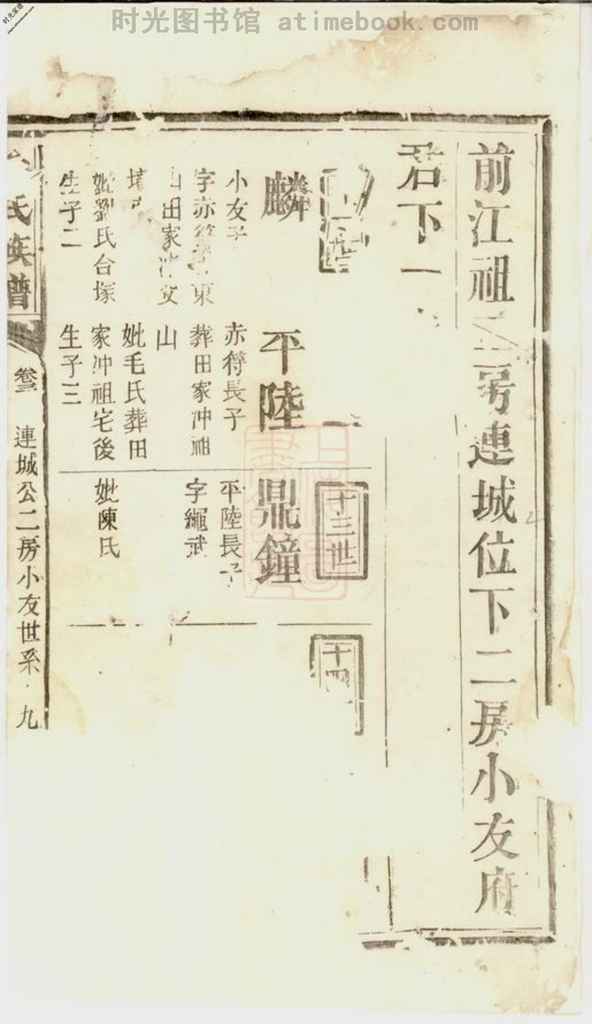 时光图书馆 atimebook.com
前江祖二房連城位下二房小友府
君下
麟
小友子
字亦
東
山田家冲
妣劉氏合塚
生子二
平陸
赤得長子
葬田家冲祖
山
妣毛氏葬田
家冲祖宅後
生子三
十三世
鼎鐘
平陸長子
字繩武
妣陳氏
十四
氏族譜
連城公二房小友世系
九